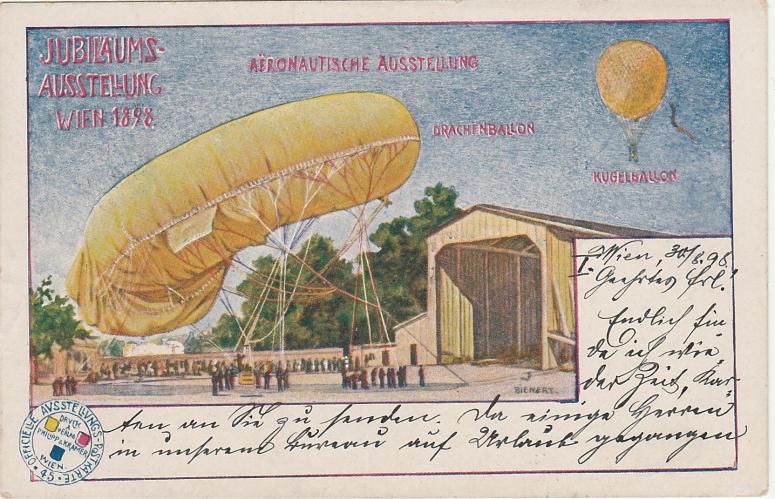 JUBILÄUMS-
AUSSTELLUNG
WIEN 1898.
AËRONAUTISCHE AUSSTELLUNG
DRACHENBALLON
KUGELBALLON
I.
Wien, 30/8. 98.
Geehrtes Frl.!
Endlich fin
de ich wie
der Zeit, Kar-
ten an Sie zu senden. Da einige Herren
in unserem Bureau auf Urlaub gegangen
BIENERT.
OFFICIELLE AUSSTELLUNGS-POSTKARTE
DRUCK
VERLAG
PHILIPP & KRAMER
WIEN
45